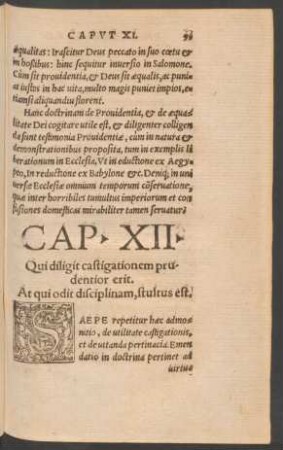 CAPVT XI. 53
æqualitas: Irascitur Deus peccato in suo cœtu &
in hostibus: hinc sequitur inuersio in Salomone.
Cùm sit prouidentia, & Deus sit æqualis, ac puni-
at iustos in hac uita, multo magis puniet impios, e-
tiamsi aliquandiu florent.
Hanc doctrinam de Prouidentia, & de æqua-
litate Dei cogitare utile est, & diligenter colligen
da sunt testimonia Prouidentiæ, cùm in natura &
demonstrationibus proposita, tum in exemplis li
berationum in Ecclesia, Vt in eductione ex Aegy-
pto, In reductone ex Babylone &c. Deniq; in uni
uersæ Ecclesiæ omnium temporum cōseruatione,
quæ inter horribiles tumultus imperiorum et con
fusiones domesticas mirabiliter tamen seruatur.
CAP. XII.
Qui diligit castigationem pru-
dentior erit.
At qui odit disciplinam, stultus est.
SAEPE repetitur hæc admo-
nitio, de utilitate castigationis,
et de uitanda pertinacia. Emen
datio in doctrina pertinet ad
uirtus